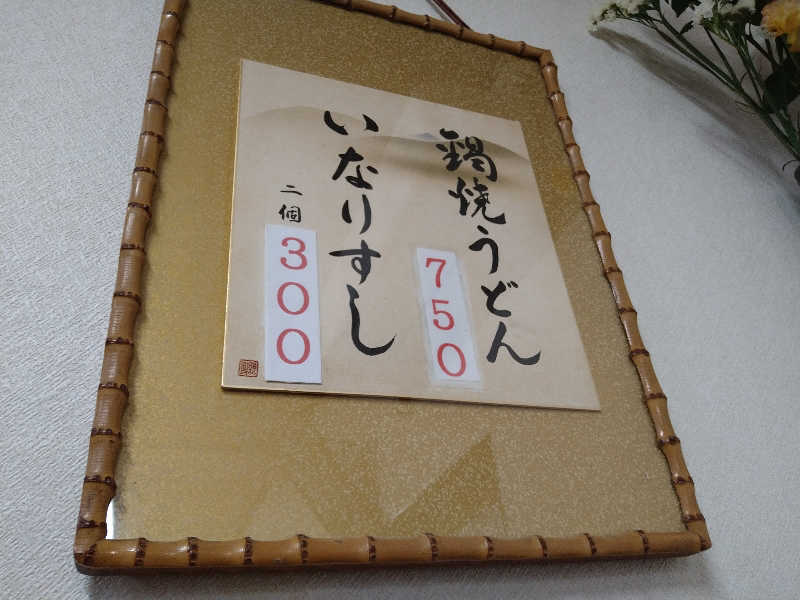 鍋焼うどん
750
いなりすし
二個
300